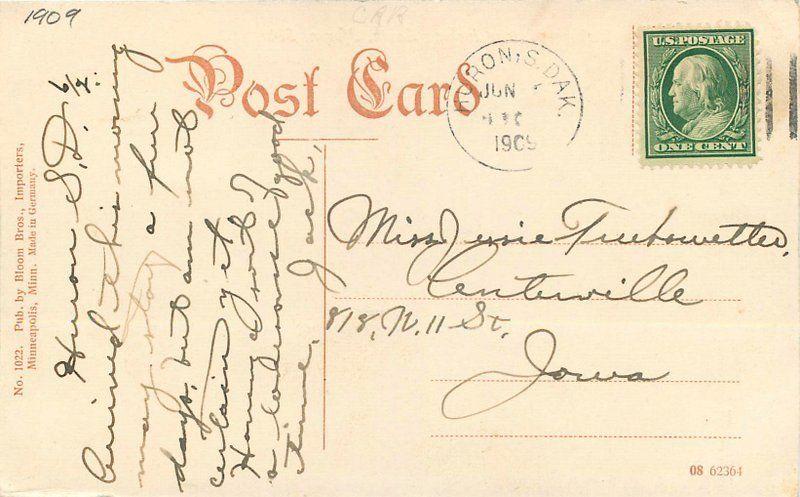 1909
CRIR
Post Card
HURON, S. DAK.
JUN
1909
U.S. POSTAGE
ONE CENT
Huron S.D. 6/7.
Arrived this morning
may stay a few
days, but am not
certain yet
Having
a good
time,
Jack,
Miss Jessie
Centerville
818, N. 11 St,
Iowa
No. 1022. Pub. by Bloom Bros., Importers,
Minneapolis, Minn. Made in Germany.
08 62364